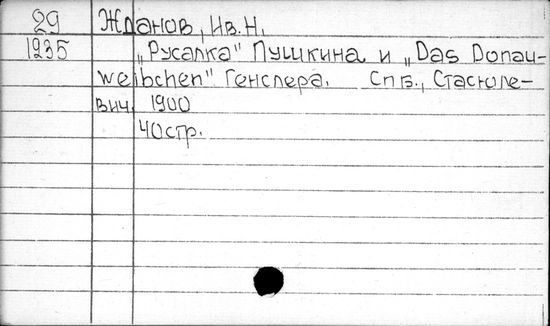 29 Жданов, Ив. Н.
1235 „Русалка" Пушкина и „Das Donau-
weibchen" Генслера. Спб., Стасюле-
вич 1900
40 стр.